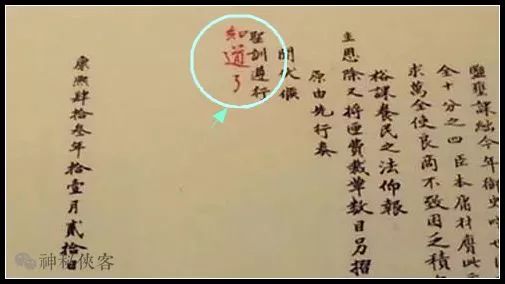 壅課絀今年御史
全十分之四臣本庸材膺此
求萬全使良商不致困乏積
裕課養民之法仰報
主恩除又將匣費裁革數目另摺
原由先行奏
聞伏候
聖訓遵行
知道了
康熙肆拾叁年拾壹月貳拾
神秘俠客